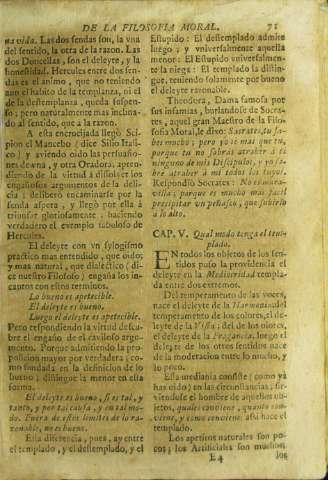 DE LA FILOSOFIA MORAL. 71
na vida. Las dos sendas son, la vna
del sentido, la otra de la razon. Las
dos Doncellas, son el deleyte, y la
honestidad. Hercules entre dos sen-
das es el animo, que no teniendo
aun el habito de la templança, ni el
de la destemplança, queda suspen-
so; pero naturalmente mas inclina-
do al sentido, que a la razon.
A esta encrucijada llegò Sci-
pion el Mancebo (dice Silio Itali-
co) y aviendo oido las persuasio-
nes de vna, y otra Oradora; apren-
diendo de la virtud à dissolver los
engañosos argumentos de la deli-
cia; deliberò encaminarse por la
senda aspera, y llegò por ella à
triunfar gloriosamente, haciendo
verdadero el exemplo fabuloso de
Hercules.
El deleyte con vn sylogismo
practico mas entendido, que oido;
y mas natural, que dialectico (di-
ce nuestro Filosofo) engaña los in-
cautos con estos terminos.
Lo bueno es apetecible.
El deleyte es bueno.
Luego el deleyte es apetecible.
Pero respondiendo la virtud descu-
bre el engaño de el caviloso argu-
mento. Porque admitiendo la pro-
posicion mayor por verdadera; co-
mo fundada en la definicion de lo
bueno; distingue la menor en esta
forma.
El deleyte es bueno, si es tal, y
tanto, y por tal causa, y en tal mo-
do. Fuera de estos limites de lo ra-
zonable, no es bueno.
Esta diferencia, pues, ay entre
el templado, y el destemplado, y el
Estupido: El destemplado admite
luego; y vniversalmente aquella
menor: El Estupido vniversalmen-
te la niega: El templado la distin-
gue, teniendo solamente por bueno
el deleyte razonable.
Theodora, Dama famosa por
sus infamias, burlandose de Socra-
tes, aquel gran Maestro de la Filo-
sofia Moral, le dixo: Socrates, tu sa-
bes mucho; pero yo se mas que tu,
porque tu no sabràs atraher à ti
ninguno de mis Discipulos, y yo sa-
bre atraher à mi todos los tuyos.
Respondiò Socrates: No es mara-
villa; porque es mucho mas facil
precipitar vn peñasco, que subirlo
à lo alto.
CAP. V. Qual modo tenga el tem-
plado.
EN todos los objetos de los sen-
tidos puso la providencia el
deleyte en la Mediocridad templa-
da entre dos extremos.
Del temperamento de las voces,
nace el deleyte de la Harmonia: del
temperamento de los colores, el de-
leyte de la Vista; del de los olores,
el deleyte de la Fragancia, luego el
deleyte de los otros sentidos nace
de la moderacion entre lo mucho, y
lo poco.
Esta mediania consiste (como yà
has oido) en las circunstancias; sir-
viendose el hombre de aquellos ob-
jetos, quales conviene, quanto con-
viene, y como conviene: assi hace el
templado.
Los apetitos naturales son po-
cos; los Artificiales son muchos,
E 4 los